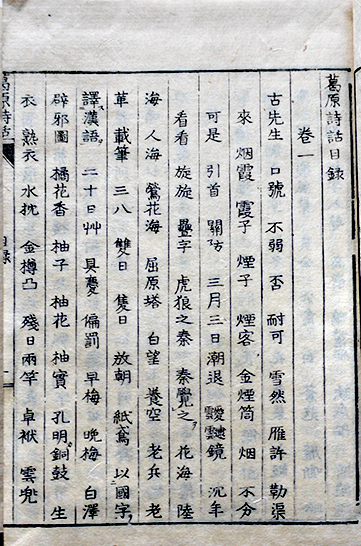 葛原詩話目録
卷一
古先生 口號 不弱 否 耐可 雪然 雁許 勒渠
來 烟霞 霞子 煙子 煙客 金煙筒 烟 不分
可是 引首 關防 三月三日潮退 靉靆鏡 沉年
看看 旋旋 疊字 虎狼之秦 秦覺之 花海 陸
海 人海 鶯花海 屈原塔 白望 養空 老兵 老
革 載筆 三八 雙日 隻日 放朝 紙鳶 以國字
譯漢語 二十日艸 具慶 偏罰 早梅 晩梅 白澤
辟邪圖 橘花香 柚子 柚花 柚實 孔明銅鼓 生
衣 熟衣 水枕 金樽凸 殘日兩竿 卓袱 雲兜
葛原詩話
目録